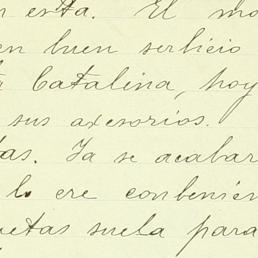 n esta. El mo
en buen serbicio
Catalina, hoy
sus axesorios.
tas. Ya se acabar
lo cre conbenien
uetas suela para